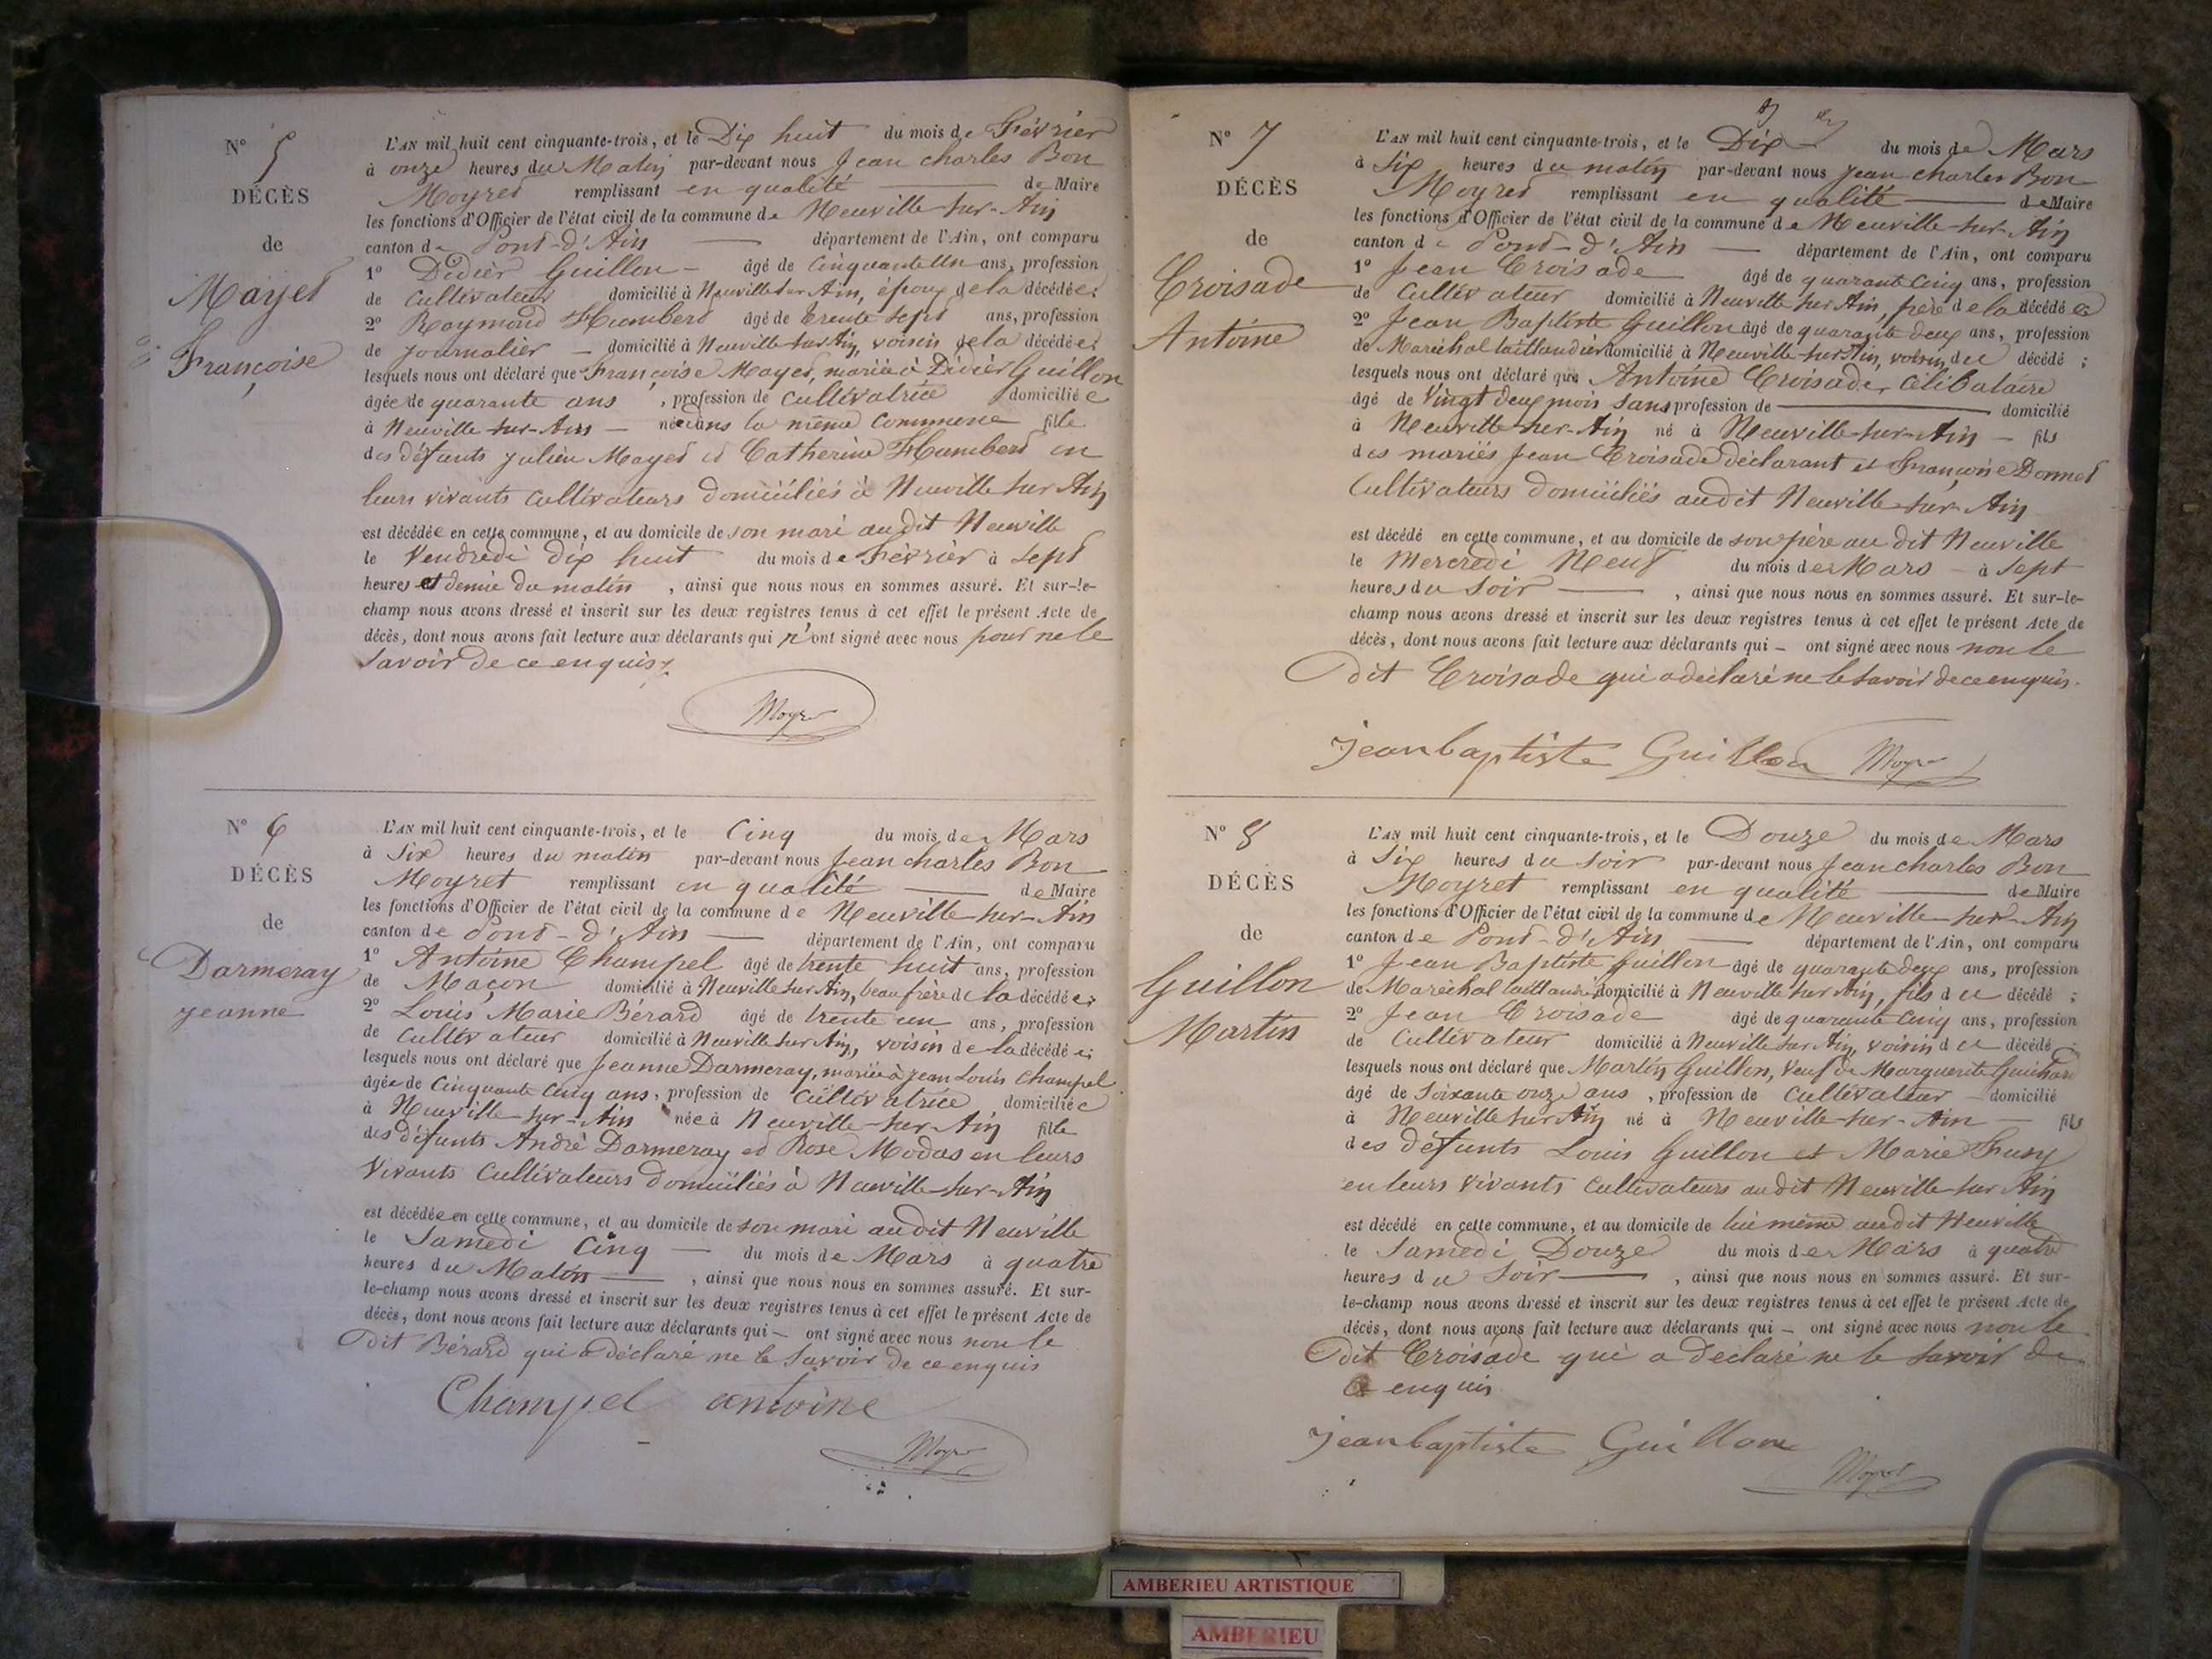 N° 5
DÉCÈS
de
Mayet
Françoise
L'AN mil huit cent cinquante-trois, et le Dix huit du mois de Février
à onze heures du Matin par-devant nous Jean charles Bon
Moyret remplissant en qualité de Maire
les fonctions d'Officier de l'état civil de la commune de Neuville-sur-Ain
canton de Pont-d'Ain département de l'Ain, ont comparu
1° Didier Guillon âgé de Cinquante Un ans, profession
de Cultivateur domicilié à Neuville sur Ain, époux de la décédée;
2° Raymond Humbert âgé de trente sept ans, profession
de journalier domicilié à Neuville-sur-Ain, voisin de la décédée;
lesquels nous ont déclaré que Françoise Mayet, mariée à Didier Guillon
âgée de quarante ans, profession de cultivatrice domiciliée
à Neuville-sur-Ain née dans la même Commune fille
des défunts julien Mayet et Catherine Humbert en
leurs vivants cultivateurs domiciliés à Neuville sur Ain
est décédée en cette commune, et au domicile de son mari audit Neuville
le Vendredi dix huit du mois de Février à sept
heures et demie du matin, ainsi que nous nous en sommes assuré. Et sur-le-
champ nous avons dressé et inscrit sur les deux registres tenus à cet effet le présent Acte de
décès, dont nous avons fait lecture aux déclarants qui n'ont signé avec nous pour ne le
savoir de ce enquis.
Moyret
N° 6
DÉCÈS
de
Darmeray
jeanne
L'AN mil huit cent cinquante-trois, et le Cinq du mois de Mars
à Six heures du matin par-devant nous Jean charles Bon
Moyret remplissant en qualité de Maire
les fonctions d'Officier de l'état civil de la commune de Neuville-sur-Ain
canton de Pont-d'Ain département de l'Ain, ont comparu
1° Antoine Champel âgé de trente huit ans, profession
de Maçon domicilié à Neuville sur Ain, beau frère de la décédée;
2° Louis Marie Bérard âgé de trente un ans, profession
de Cultivateur domicilié à Neuville sur Ain, voisin de la décédée;
lesquels nous ont déclaré que Jeanne Darmeray, mariée à jean Louis Champel
âgée de Cinquante Cinq ans, profession de Cultivatrice domiciliée
à Neuville-sur-Ain née à Neuville-sur-Ain fille
des défunts André Darmeray et Rose Modas en leurs
Vivants Cultivateurs domiciliés à Neuville-sur-Ain
est décédée en cette commune, et au domicile de son mari audit Neuville
le Samedi Cinq du mois de Mars à quatre
heures du Matin, ainsi que nous nous en sommes assuré. Et sur-
le-champ nous avons dressé et inscrit sur les deux registres tenus à cet effet le présent Acte de
décès, dont nous avons fait lecture aux déclarants qui ont signé avec nous non le
dit Bérard qui a déclaré ne le Savoir de ce enquis
Champel antoine
Moyret
N° 7
DÉCÈS
de
Croisade
Antoine
L'AN mil huit cent cinquante-trois, et le Dix du mois de Mars
à Six heures du matin par-devant nous Jean charles Bon
Moyret remplissant en qualité de Maire
les fonctions d'Officier de l'état civil de la commune de Neuville-sur-Ain
canton de Pont-d'Ain département de l'Ain, ont comparu
1° Jean Croisade âgé de quarante Cinq ans, profession
de Cultivateur domicilié à Neuville sur Ain, père de la décédée
2° Jean Baptiste Guillon âgé de quarante deux ans, profession
de Maréchal taillandier domicilié à Neuville-sur-Ain, voisin du décédé;
lesquels nous ont déclaré que Antoine Croisade, Célibataire
âgé de Vingt deux mois Sans profession de domicilié
à Neuville-sur-Ain né à Neuville-sur-Ain fils
des mariés Jean Croisade déclarant et Françoise Donnet
Cultivateurs domiciliés audit Neuville-sur-Ain
est décédé en cette commune, et au domicile de son père au dit Neuville
le Mercredi Neuf du mois de Mars à Sept
heures du Soir, ainsi que nous nous en sommes assuré. Et sur-le-
champ nous avons dressé et inscrit sur les deux registres tenus à cet effet le présent Acte de
décès, dont nous avons fait lecture aux déclarants qui ont signé avec nous non le
dit Croisade qui a déclaré ne le Savoir de ce enquis.
jean baptiste Guillon Moyret
N° 8
DÉCÈS
de
Guillon
Martin
L'AN mil huit cent cinquante-trois, et le Douze du mois de Mars
à Six heures du Soir par-devant nous Jean charles Bon
Moyret remplissant en qualité de Maire
les fonctions d'Officier de l'état civil de la commune de Neuville-sur-Ain
canton de Pont-d'Ain département de l'Ain, ont comparu
1° Jean Baptiste Guillon âgé de quarante deux ans, profession
de Maréchal taillandier domicilié à Neuville sur Ain, fils du décédé;
2° Jean Croisade âgé de quarante Cinq ans, profession
de Cultivateur domicilié à Neuville sur Ain, voisin du décédé;
lesquels nous ont déclaré que Martin Guillon, Veuf de Marguerite Guichard
âgé de Soixante onze ans, profession de Cultivateur domicilié
à Neuville sur Ain né à Neuville-sur-Ain fils
des défunts Louis Guillon et Marie Frusy
en leurs Vivants Cultivateurs audit Neuville sur Ain
est décédé en cette commune, et au domicile de lui même audit Neuville
le Samedi Douze du mois de Mars à quatre
heures du Soir, ainsi que nous nous en sommes assuré. Et sur-
le-champ nous avons dressé et inscrit sur les deux registres tenus à cet effet le présent Acte de
décès, dont nous avons fait lecture aux déclarants qui ont signé avec nous non le
dit Croisade qui a déclaré ne le savoir de
Ce enquis
jean baptiste Guillon
Moyret
AMBERIEU ARTISTIQUE
AMBERIEU